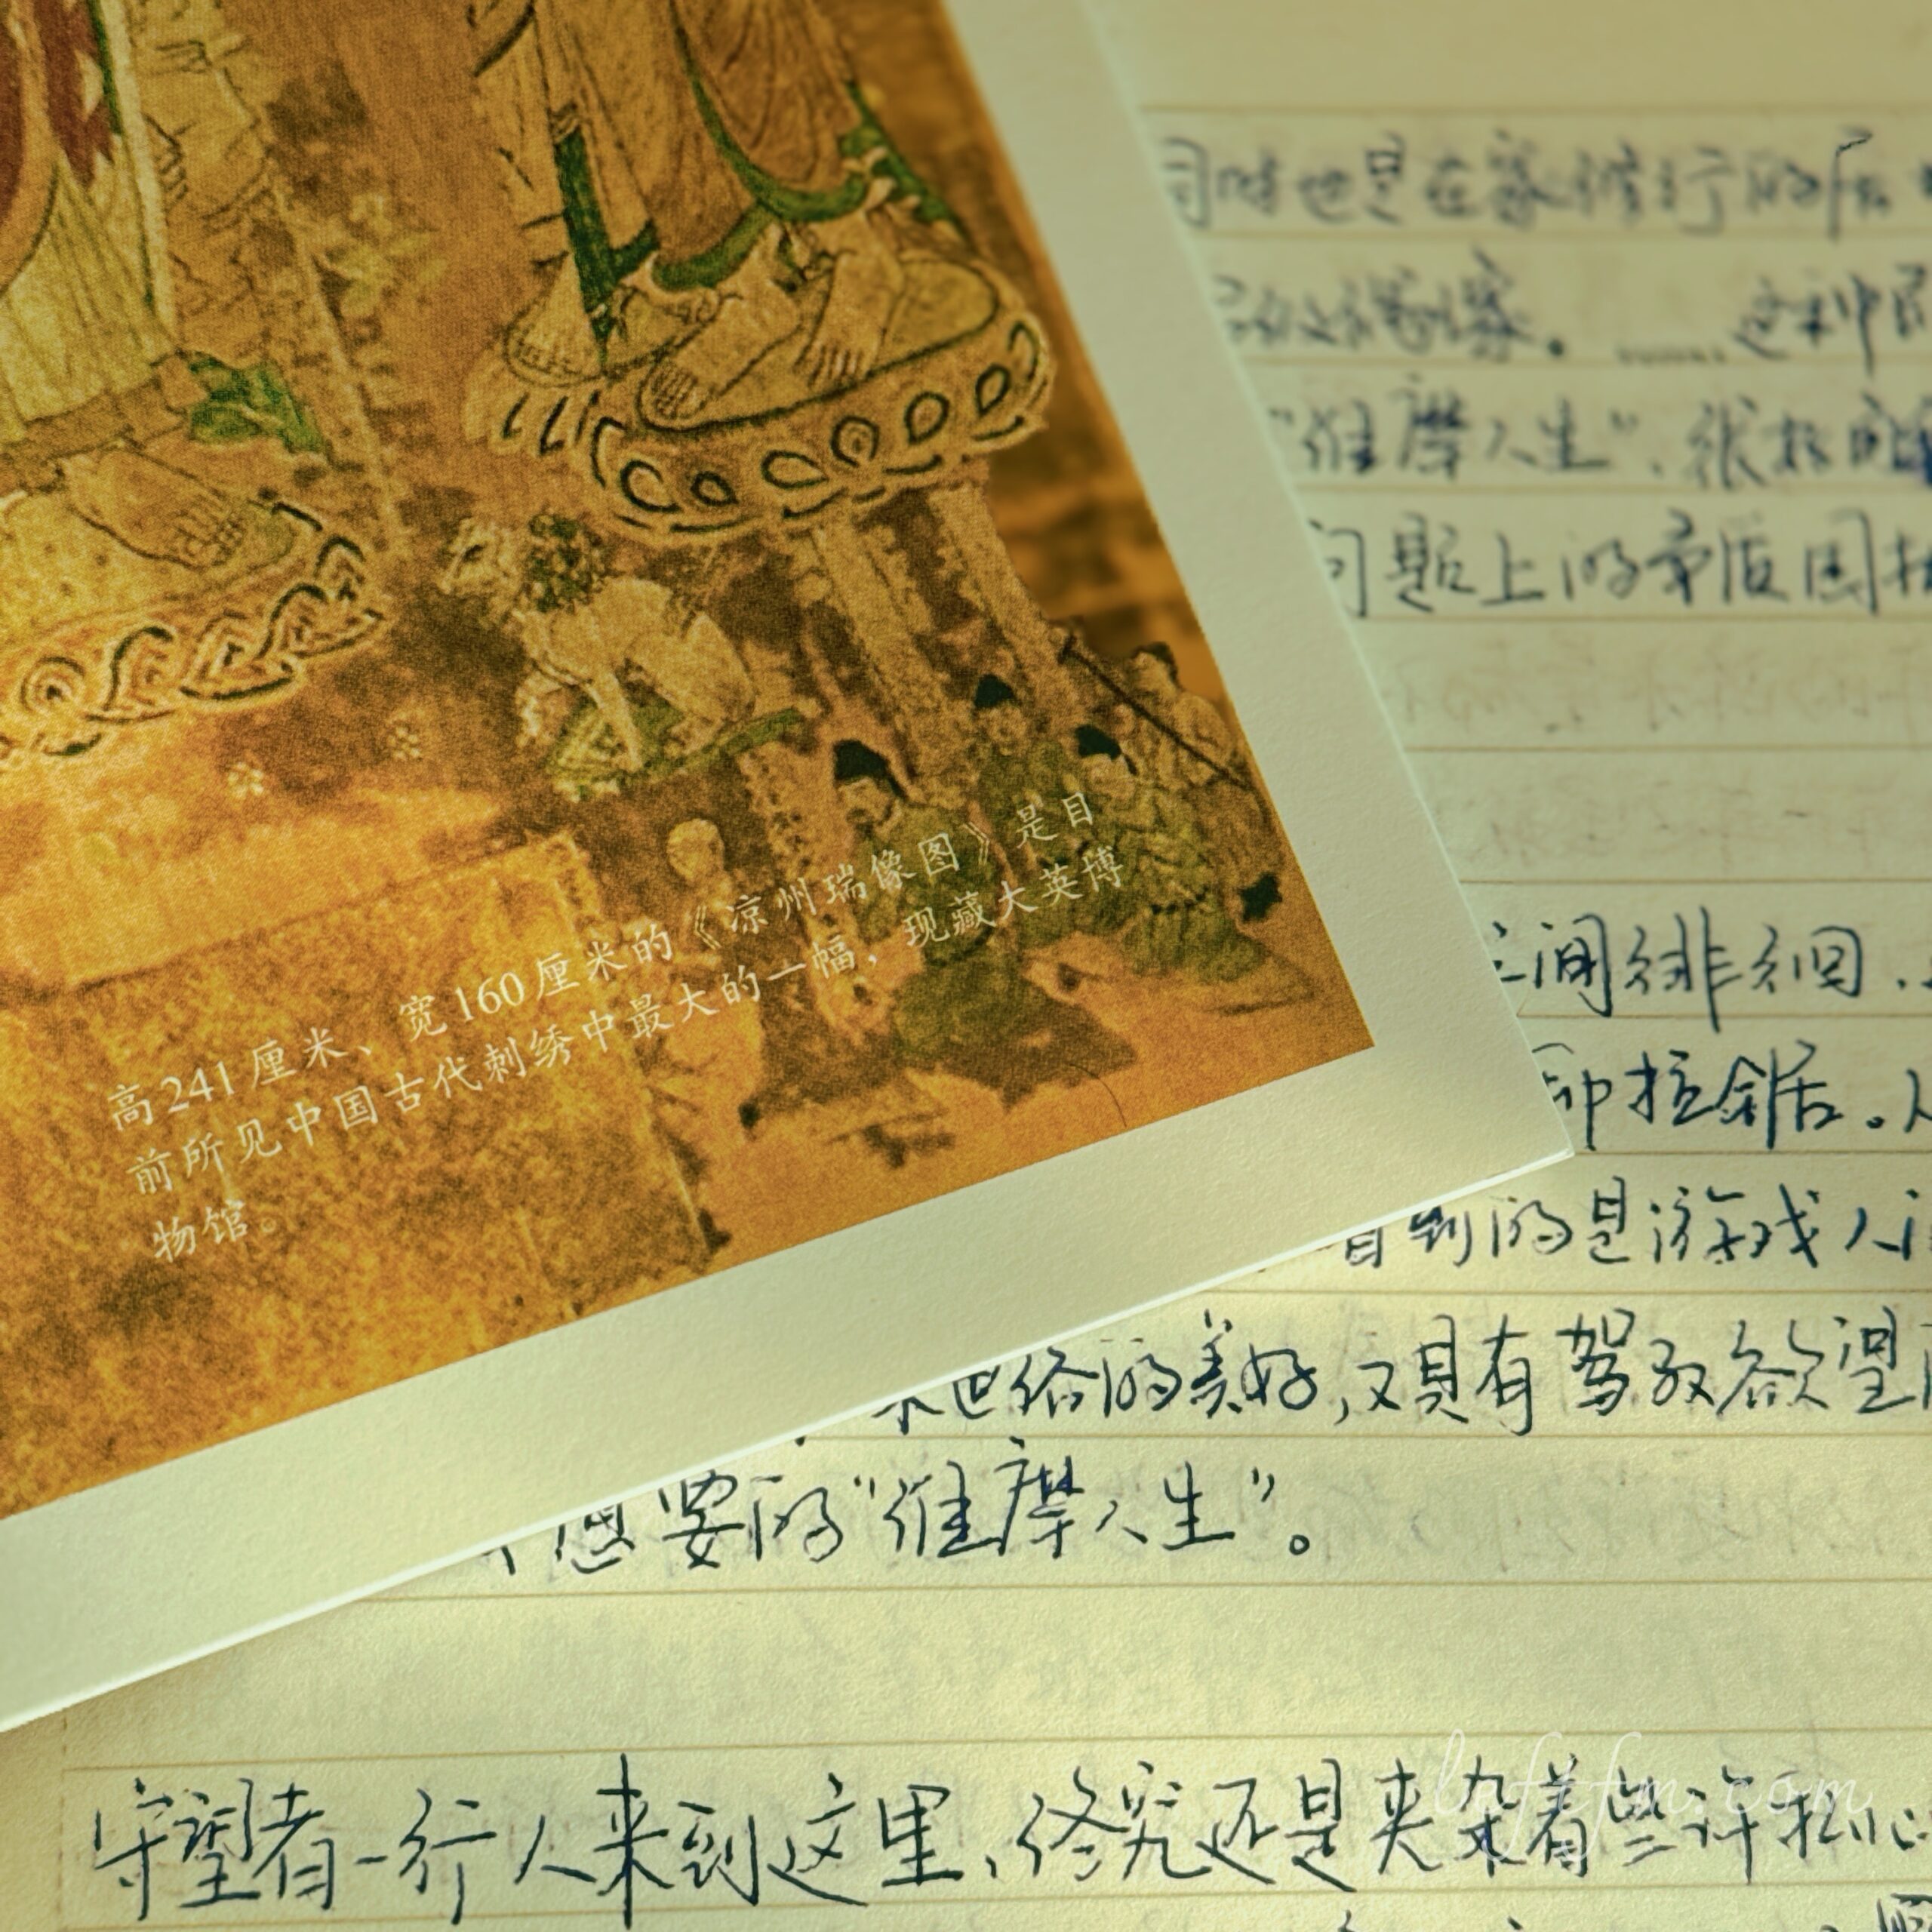 高241厘米、宽160厘米的《凉州瑞像图》是目
前所见中国古代刺绣中最大的一幅，现藏大英博
物馆。
同时也是在家修行的居
这种
“维摩人生”，张
问题上的矛盾困扰
之间徘徊，
和拉邻居。人
看到的是游戏人间
世俗的美好，又具有驾驭欲望
想要的“维摩人生”。
守望者一行人来到这里，终究还是夹杂着些许私心